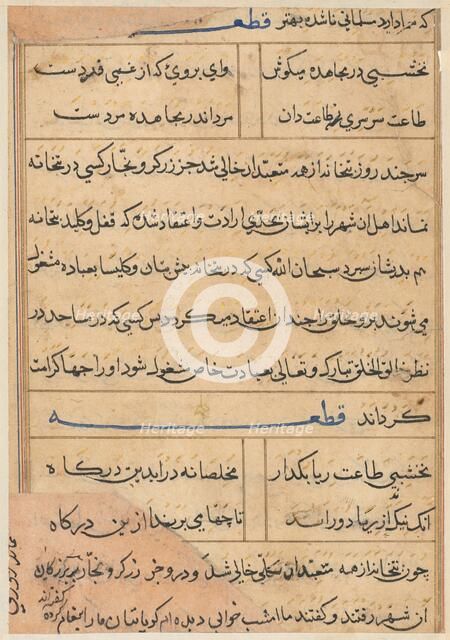 که مر دارد مسلمانی ناشده بهتر قطعه
نخشبی در مجاهده میکوش وای بروی که از غیبی فردست
طاعت سرسری نه طاعت دان مرد اندر مجاهده مردست
سر چند روز بتخانه از همه متعبدان خالی شد جز زرگر و نجار کسی در بتخانه
نماند اهل آن شهر را بر ایشان ارادت و اعتقاد شد که قفل و کلید بتخانه
هم بدیشان سپرد سبحان الله کسی که در بتخانه پیش بتان و کلیسا بعباده مشغول
می شوند برو خلق را چندان اعتقاد میگردد پس کسی که در مساجد در
نظر خالق الخلق تبارک و تعالی بعبادت خاص مشغول شود او را چها کرامت
گرداند قطعه
نخشبی طاعت ریا بگذار مخلصانه درا بدین درگاه
انک نیک از ریا دور اند تا چها می برند ازین درگاه
چون بتخانه از همه متعبدان خالی شد و در وی جز زرگر و نجار
از شهر رفتند و گفتند ما امشب خوابی دیده ایم گویا بتان ما را